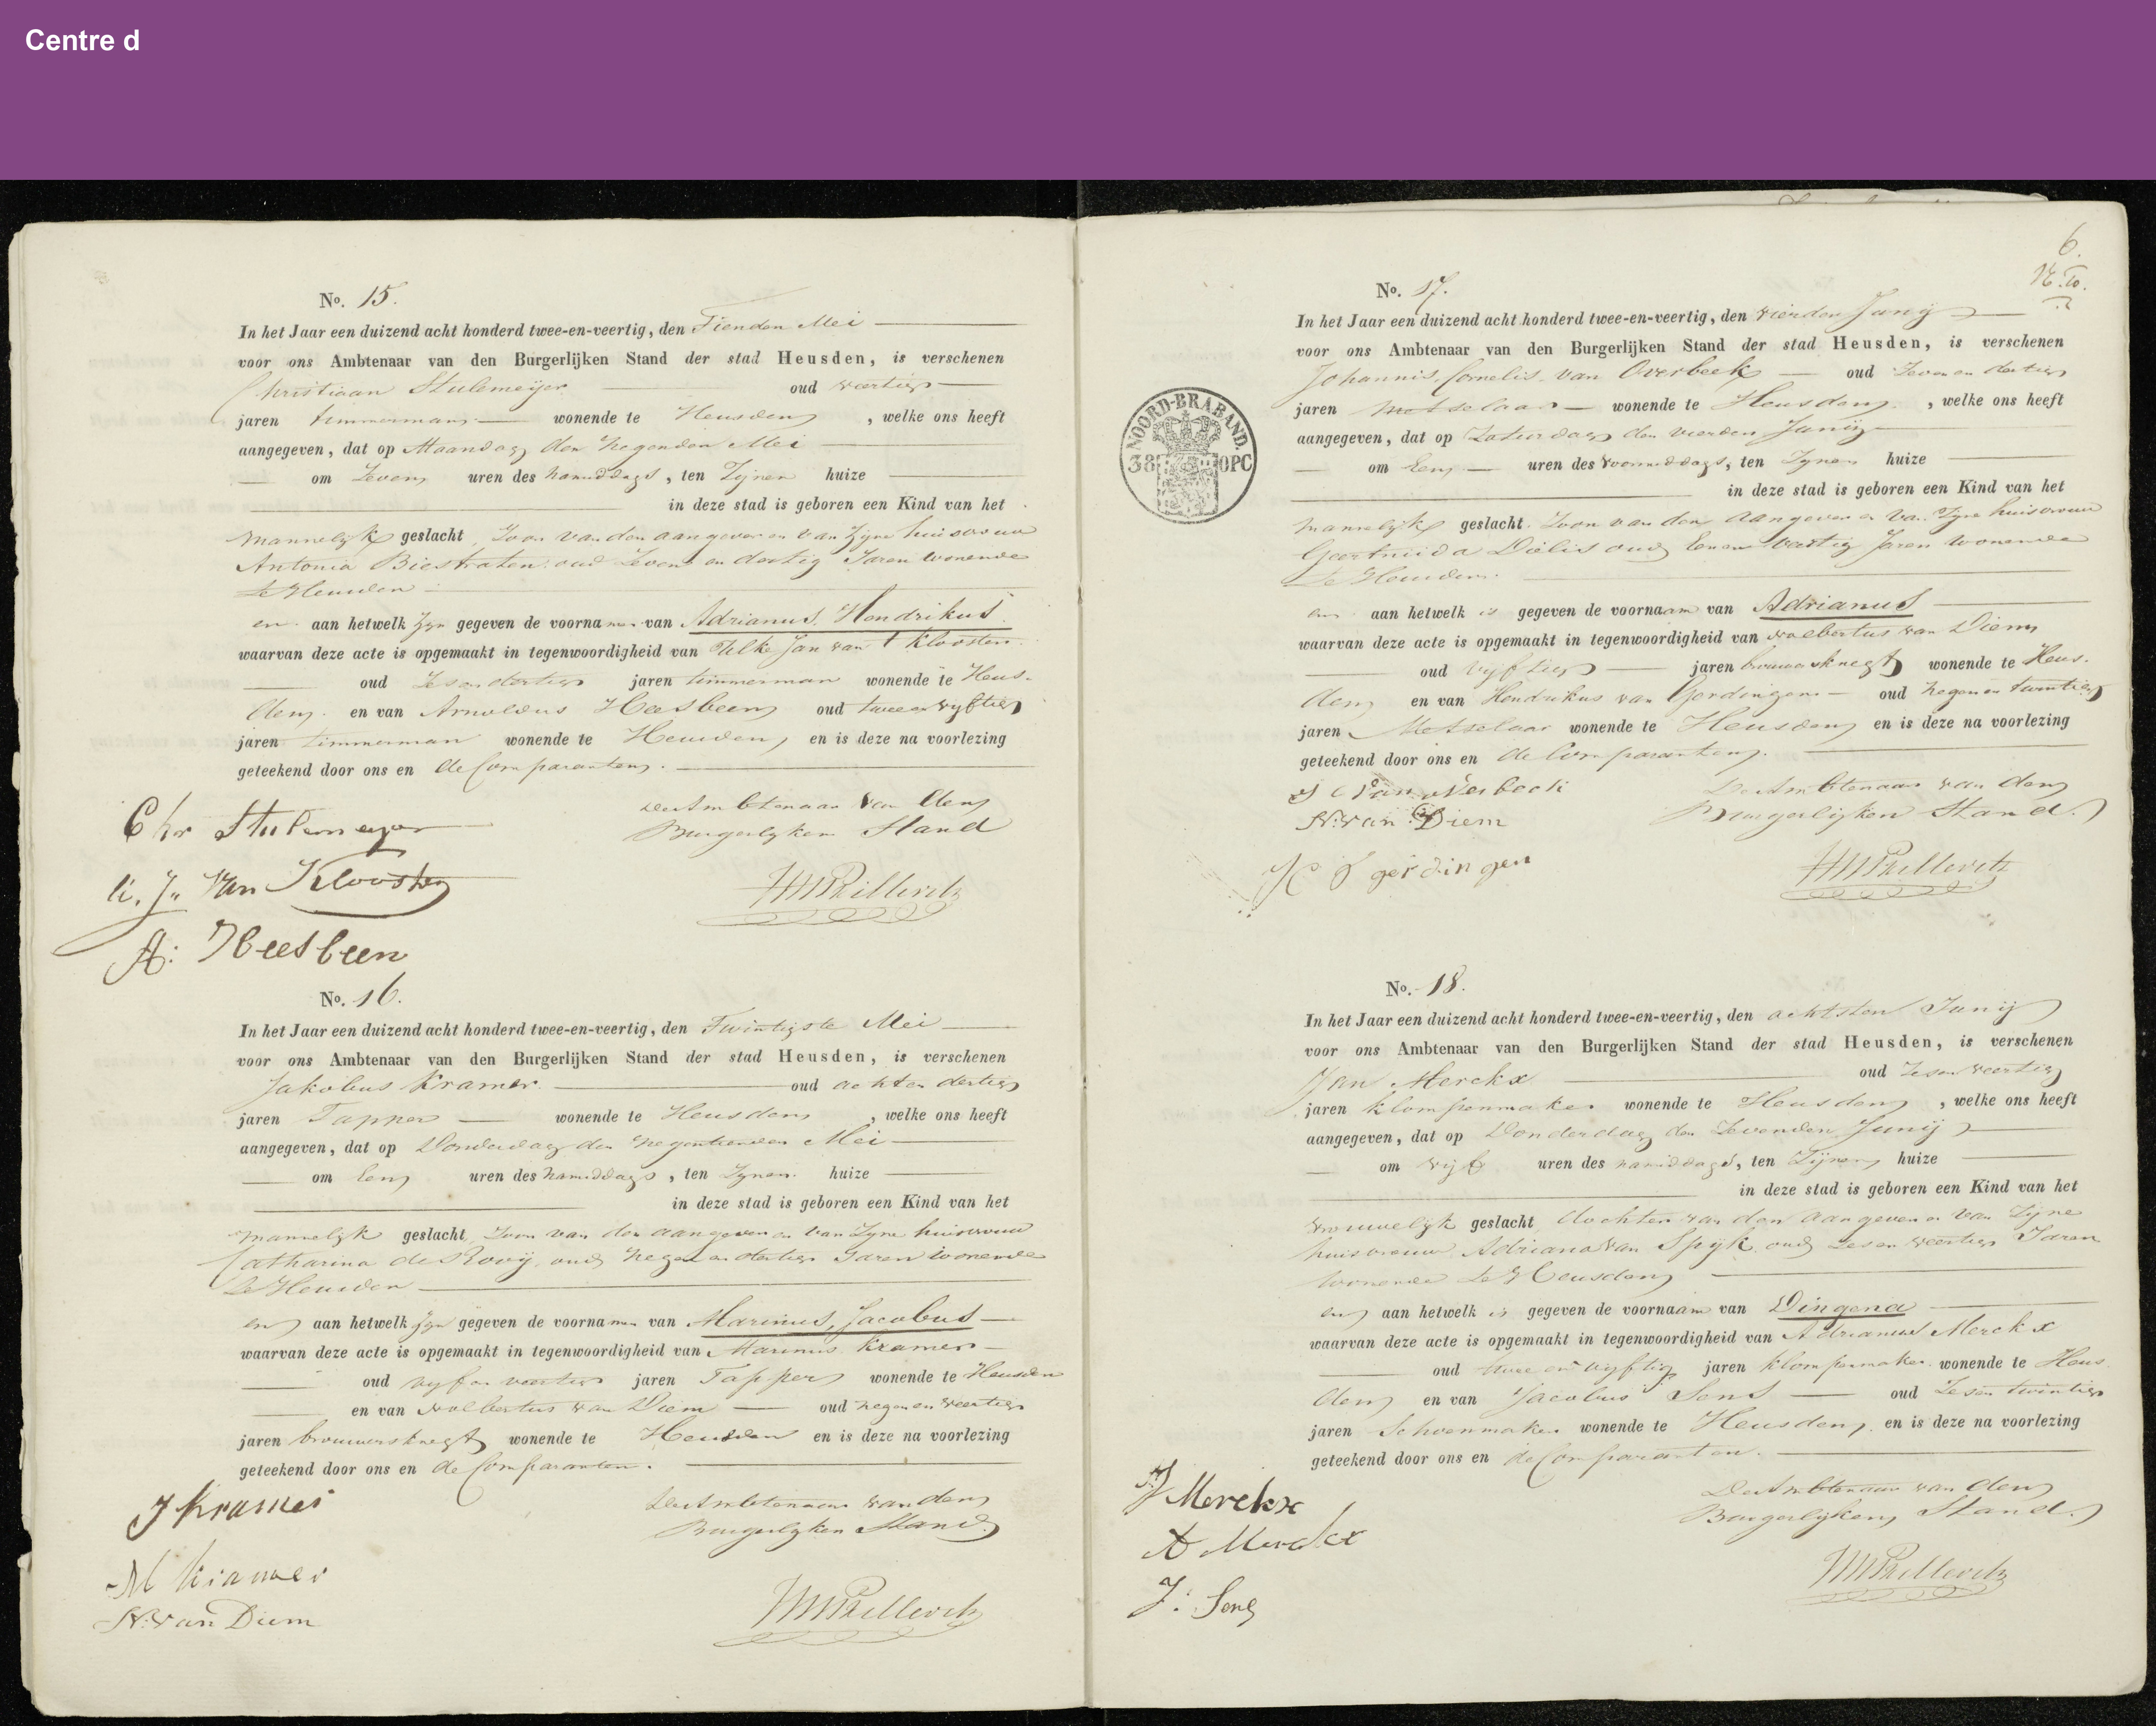 Centre d
No. 15.
In het Jaar een duizend acht honderd twee-en-veertig, den Tienden Mei
voor ons Ambtenaar van den Burgerlijken Stand der stad Heusden, is verschenen
Christiaan Stulemeijer oud veertig
jaren timmerman wonende te Heusden, welke ons heeft
aangegeven, dat op Maandag den negenden Mei
om zeven uren des namiddags, ten Zijnen huize
in deze stad is geboren een Kind van het
mannelijk geslacht, Zoon van den aangever en van Zijne huisvrouw
Antonia Biestraten oud Zeven en dertig Jaren wonende
te Heusden
en aan hetwelk zijn gegeven de voornamen van Adrianus, Hendrikus
waarvan deze acte is opgemaakt in tegenwoordigheid van Jan van t Klooster
oud Zesendertig jaren timmerman wonende te Heus-
den en van Arnoldus Heesbeen oud twee en vyftig
jaren timmerman wonende te Heusden en is deze na voorlezing
geteekend door ons en de Comparanten.
Chr Stulemeyer
De Ambtenaar van den
Burgerlyken Stand
J. van Klooster
HMPhillevitz
A: Heesbeen
No. 16.
In het Jaar een duizend acht honderd twee-en-veertig, den Twintigste Mei
voor ons Ambtenaar van den Burgerlijken Stand der stad Heusden, is verschenen
Jakobus Kramer oud acht en dertig
jaren Tapper wonende te Heusden, welke ons heeft
aangegeven, dat op Donderdag den negentienden Mei
om Een uren des namiddags, ten Zynen huize
in deze stad is geboren een Kind van het
mannelyk geslacht, Zoon van den aangever en van Zyne huisvrouw
Catharina de Rooij, oud negen en dertig Jaren wonende
te Heusden
en aan hetwelk zijn gegeven de voornamen van Marinus, Jacobus
waarvan deze acte is opgemaakt in tegenwoordigheid van Marinus Kramer
oud vyf en veertig jaren Tapper wonende te Heusden
en van Wolbertus van Diem oud negen en veertig
jaren brouwersknegt wonende te Heusden en is deze na voorlezing
geteekend door ons en de Comparanten.
J Kramer
De Ambtenaar van den
Burgerlyken Stand.
M Kramer
W. van Diem
HMPhillevitz
6
No. 17.
In het Jaar een duizend acht honderd twee-en-veertig, den vierden Junij
voor ons Ambtenaar van den Burgerlijken Stand der stad Heusden, is verschenen
Johannis, Cornelis van Overbeek oud Zeven en dertig
jaren Metselaar wonende te Heusden, welke ons heeft
aangegeven, dat op Zaturdag den vierden Junij
om Een uren des voormiddags, ten Zynen huize
in deze stad is geboren een Kind van het
mannelyk geslacht, Zoon van den aangever en van Zyne huisvrouw
Geertruida Dielis oud Een en veertig Jaren wonende
te Heusden
en aan hetwelk is gegeven de voornaam van Adrianus
waarvan deze acte is opgemaakt in tegenwoordigheid van Wolbertus van Diem
oud vyftig jaren brouwersknegt wonende te Heus-
den en van Hendrikus van Gerdingen oud negen en twintig
jaren Metselaar wonende te Heusden en is deze na voorlezing
geteekend door ons en de Comparanten.
NOORD-BRABAND.
38 OPC
J C van overbeek
W. van Diem
De Ambtenaar van den
Burgerlijken Stand.
H v gerdingen
HMPhillevitz
No. 18.
In het Jaar een duizend acht honderd twee-en-veertig, den achtsten Junij
voor ons Ambtenaar van den Burgerlijken Stand der stad Heusden, is verschenen
Jan Merckx oud Zesen veertig
jaren klompenmaker wonende te Heusden, welke ons heeft
aangegeven, dat op Donderdag den Zevenden Junij
om vijf uren des namiddags, ten Zijnen huize
in deze stad is geboren een Kind van het
vrouwelijk geslacht dochter van den aangever en van Zijne
huisvrouw Adriana van Spijk oud Zesen veertig Jaren
wonende te Heusden
en aan hetwelk is gegeven de voornaam van Dingena
waarvan deze acte is opgemaakt in tegenwoordigheid van Adrianus Merckx
oud twee en vyftig jaren klompenmaker wonende te Heus
den en van Jacobus Sens oud Zesen twintig
jaren Schoenmaker wonende te Heusden, en is deze na voorlezing
geteekend door ons en de Comparanten.
J Merckx
De Ambtenaar van den
Burgerlijken Stand.
A Merckx
J: Sens
HMPhillevitz